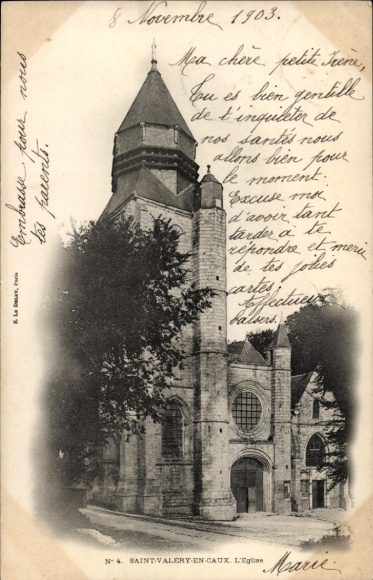 8 Novembre 1903.
Ma chère petite Irène,
Tu es bien gentille
de t'inquiéter de
nos santés nous
allons bien pour
le moment.
Excuse moi
d'avoir tant
tarder a te
répondre et merci
de tes jolies
cartes.
Effectueux
baisers.
Marie
Embrasse pour nous
tes parents.
E. Le Deley, Paris
N° 4. SAINT-VALÉRY-EN-CAUX. L'Eglise